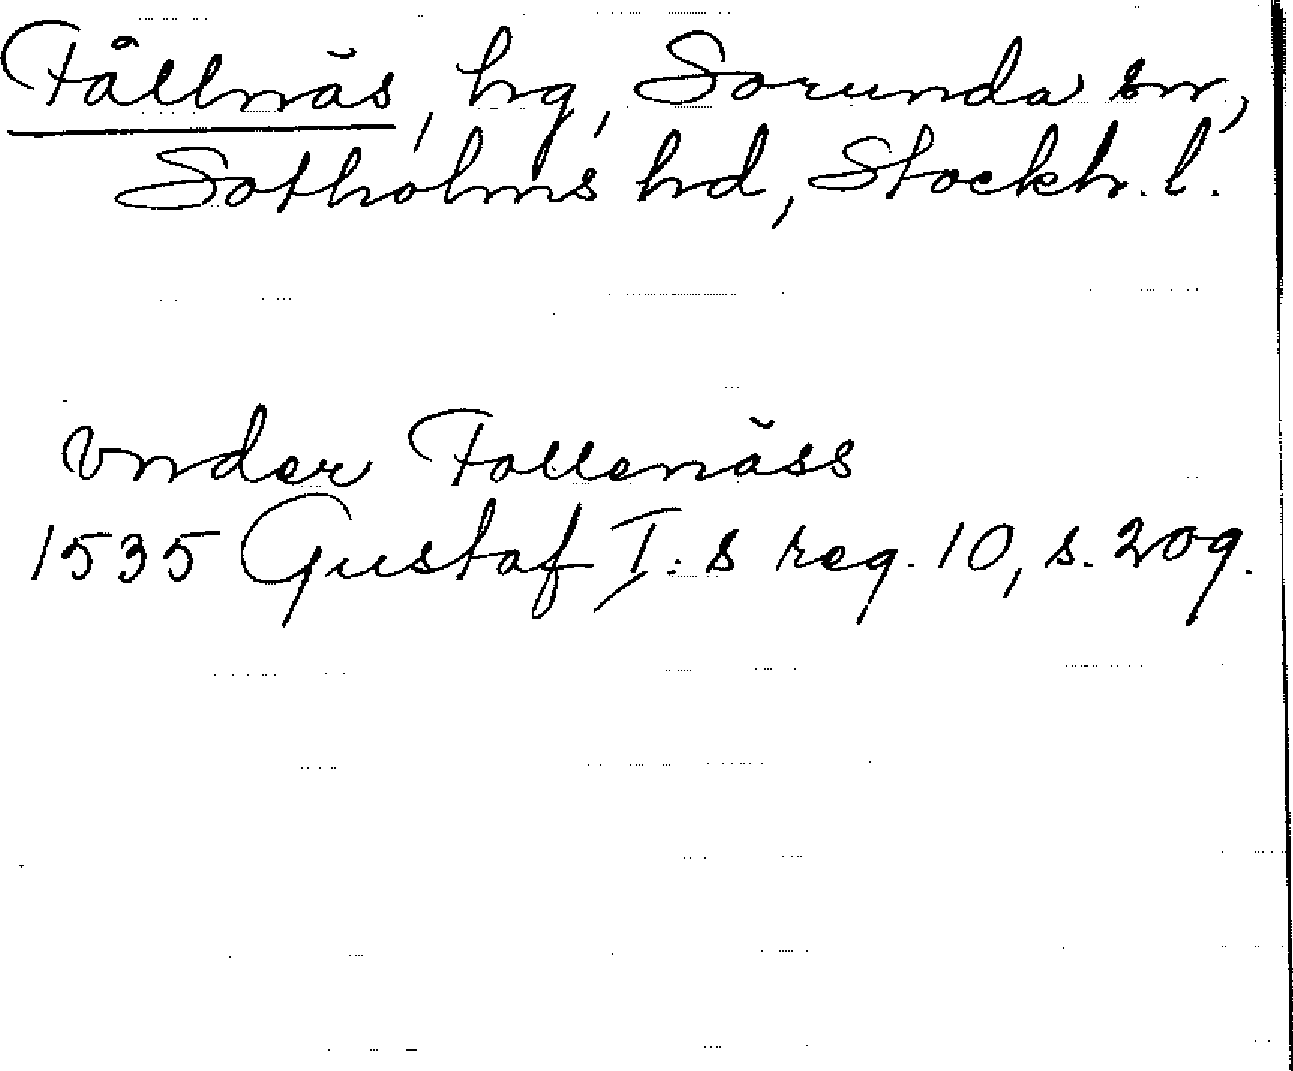 Fållnäs, hg, Sorunda sn,
Sotholms hd, Stockh. l.
vnder Follenäss
1535 Gustaf I:s reg. 10, s. 209.